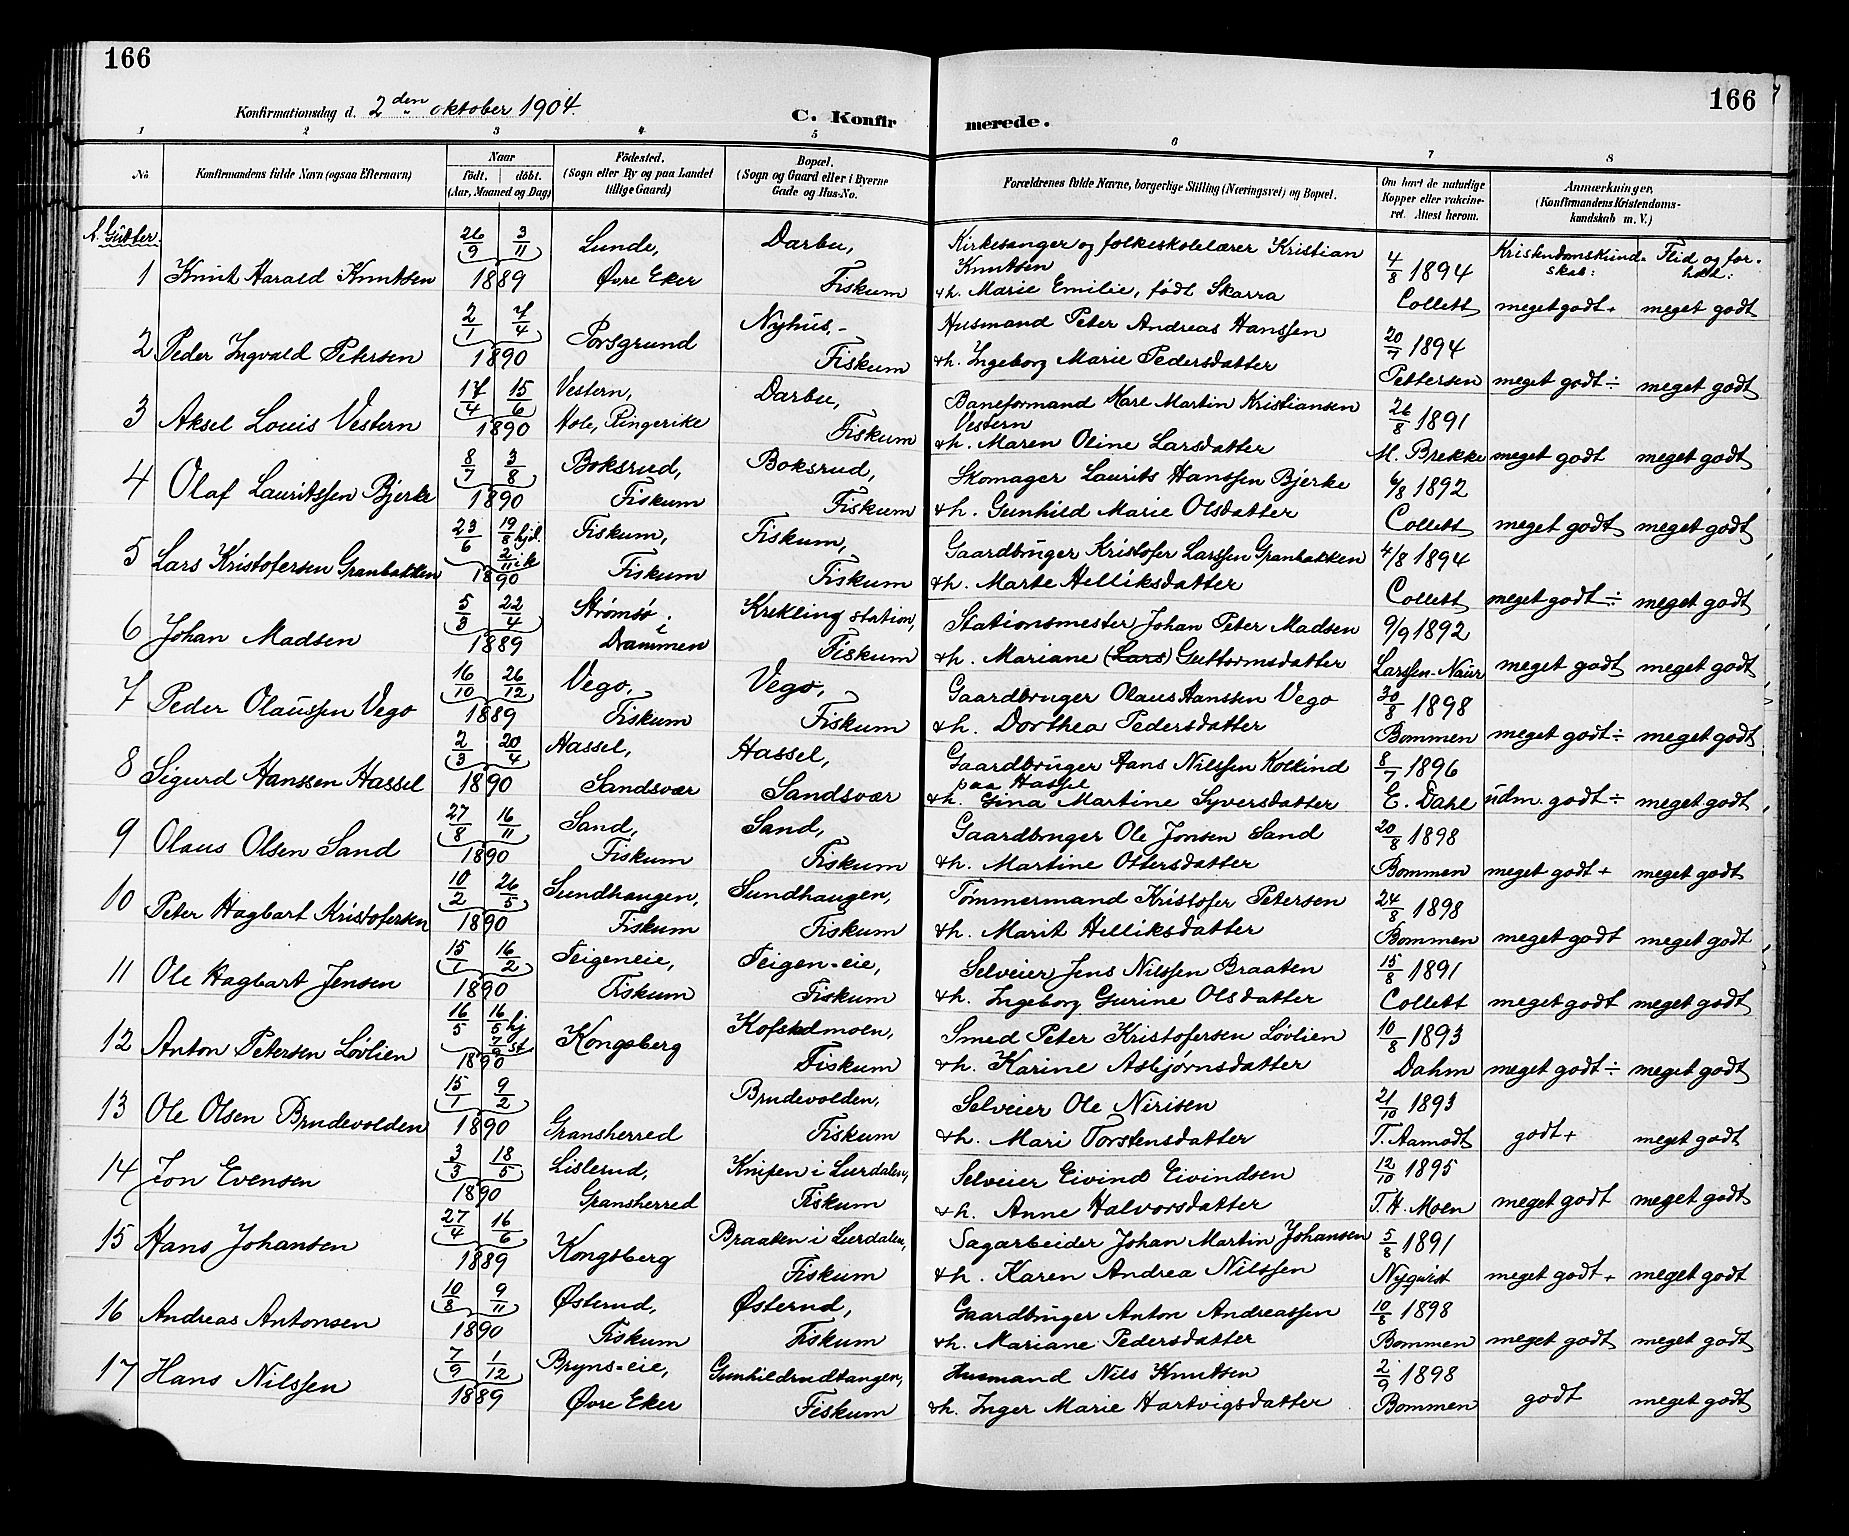 166
166
Konfirmationsdag d. 2den oktober 1904.
C. Konfirmerede.
1 2 3 4 5 6 7 8
No Konfirmandens fulde Navn (ogsaa Efternavn) Naar født. døbt. (Aar, Maaned og Dag) Fødested. (Sogn eller By og paa Landet tillige Gaard) Bopæl. (Sogn og Gaard eller i Byerne Gade og Hus-No. Forældrenes fulde Navne, borgerlige Stilling (Næringsvei) og Bopæl. Om havt de naturlige Kopper eller vakcineret. Attest herom. Anmærkninger, (Konfirmandens Kristendomskundskab m. V.)
A. Gutter. Kristendomskundskab: Flid og forhold:
1 Knut Harald Knutsen 26/9 3/11 1889 Lunde, Øvre Eker Darbu, Fiskum Kirkesanger og folkeskolelærer Kristian Knutsen
& h. Marie Emilie, født Skarra 4/8 1894 Collett meget godt + meget godt
2 Peder Ingvald Petersen 2/1 7/4 1890 Porsgrund Nyhus, Fiskum Husmand Peter Andreas Hanssen
& h. Ingeborg Marie Pedersdatter 20/7 1894 Pettersen meget godt ÷ meget godt
3 Aksel Louis Vestern 17/4 15/6 1890 Vestern, Hole, Ringerike Darbu, Fiskum Baneformand Kare Martin Kristiansen Vestern
& h. Maren Oline Larsdatter 26/8 1891 M. Brekke meget godt meget godt
4 Olaf Lauritssen Bjerke 8/7 3/8 1890 Boksrud, Fiskum Boksrud, Fiskum Skomager Laurits Hanssen Bjerke
& h. Gunhild Marie Olsdatter 6/8 1892 Collett meget godt meget godt
5 Lars Kristofersen Granbakken 23/6 19/8 hjd. 2/11 ik 1890 Fiskum, Fiskum Fiskum, Fiskum Gaardbruger Kristofer Larssen Granbakken
& h. Marte Helliksdatter 4/8 1894 Collett meget godt ÷ meget godt
6 Johan Madsen 5/3 22/4 1889 Strømsø i Drammen Krekling station, Fiskum Stationsmester Johan Peter Madsen
& h. Mariane (Lars) Guttormsdatter 9/9 1892 Larssen-Naur meget godt meget godt
7 Peder Olaussen Vego 16/10 26/12 1889 Vego, Fiskum Vego, Fiskum Gaardbruger Olaus Hanssen Vego
& h. Dorthea Pedersdatter 30/8 1898 Bommen meget godt ÷ meget godt
8 Sigurd Hanssen Hassel 2/3 20/4 1890 Hassel, Sandsvær Hassel, Sandsvær Gaardbruger Hans Nilssen Kolkind paa Hassel
& h. Gina Martine Syversdatter 8/7 1896 E. Dahl udm. godt ÷ meget godt
9 Olaus Olsen Sand 27/8 16/11 1890 Sand, Fiskum Sand, Fiskum Gaardbruger Ole Jonsen Sand
& h. Martine Ottersdatter 20/8 1898 Bommen meget godt + meget godt
10 Peter Hagbart Kristofersen 10/2 26/5 1890 Sundhaugen, Fiskum Sundhaugen, Fiskum Tømmermand Kristofer Petersen
& h. Marit Helliksdatter 24/8 1898 Bommen meget godt meget godt
11 Ole Hagbart Jensen 15/1 16/2 1890 Teigeneie, Fiskum Teigen-eie, Fiskum Selveier Jens Nilssen Braaten
& h. Ingeborg Gurine Olsdatter 15/8 1891 Collett meget godt meget godt
12 Anton Petersen Løvlien 16/5 16/5 hj 7/9 st 1890 Kongsberg Kofstadmoen, Fiskum Smed Peter Kristofersen Løvlien
& h. Karine Asbjørnsdatter 10/8 1893 Dahm meget godt ÷ meget godt
13 Ole Olsen Brudevolden 15/1 9/2 1890 Gransherred Brudevolden, Fiskum Selveier Ole Nirisen
& h. Mari Torstensdatter 21/10 1893 T. Aamodt godt + meget godt
14 Jon Evensen 3/3 18/5 1890 Lislerud, Gransherred Knipen i Lurdalen, Fiskum Selveier Eivind Eivindsen
& h. Anne Halvorsdatter 12/10 1895 T. H. Moen meget godt meget godt
15 Hans Johansen 27/4 16/6 1889 Kongsberg Braaten i Lurdalen, Fiskum Sagarbeider Johan Martin Johansen
& h. Karen Andrea Nilssen 5/8 1891 Nyqvist meget godt + meget godt
16 Andreas Antonsen 10/8 9/11 1890 Østerud, Fiskum Østerud, Fiskum Gaardbruger Anton Andreassen
& h. Mariane Pedersdatter 10/8 1898 Bommen meget godt meget godt
17 Hans Nilssen 7/9 1/12 1889 Bryns-eie, Øvre Eker Gunhildrudtangen, Fiskum Husmand Nils Knutsen
& h. Inger Marie Hartvigsdatter 2/9 1898 Bommen godt meget godt